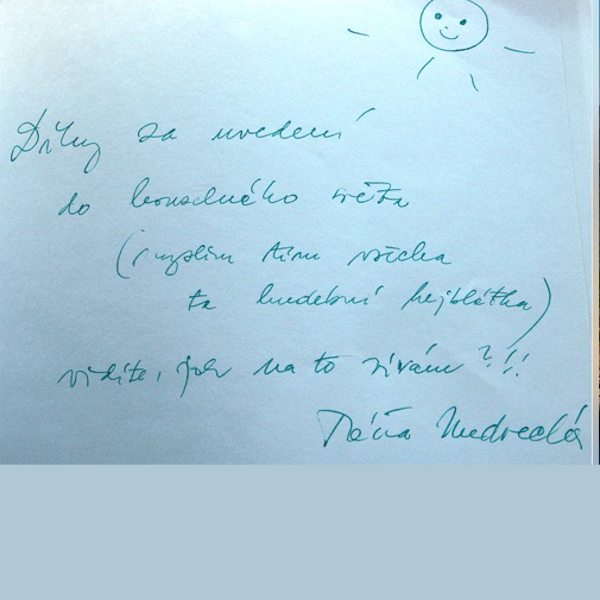 Díky za uvedení
do kouzelného světa
(myslím tím všecka
ta hudební hejblátka)
vidíte, jak na to zírám ?!!
Táňa Medvecká